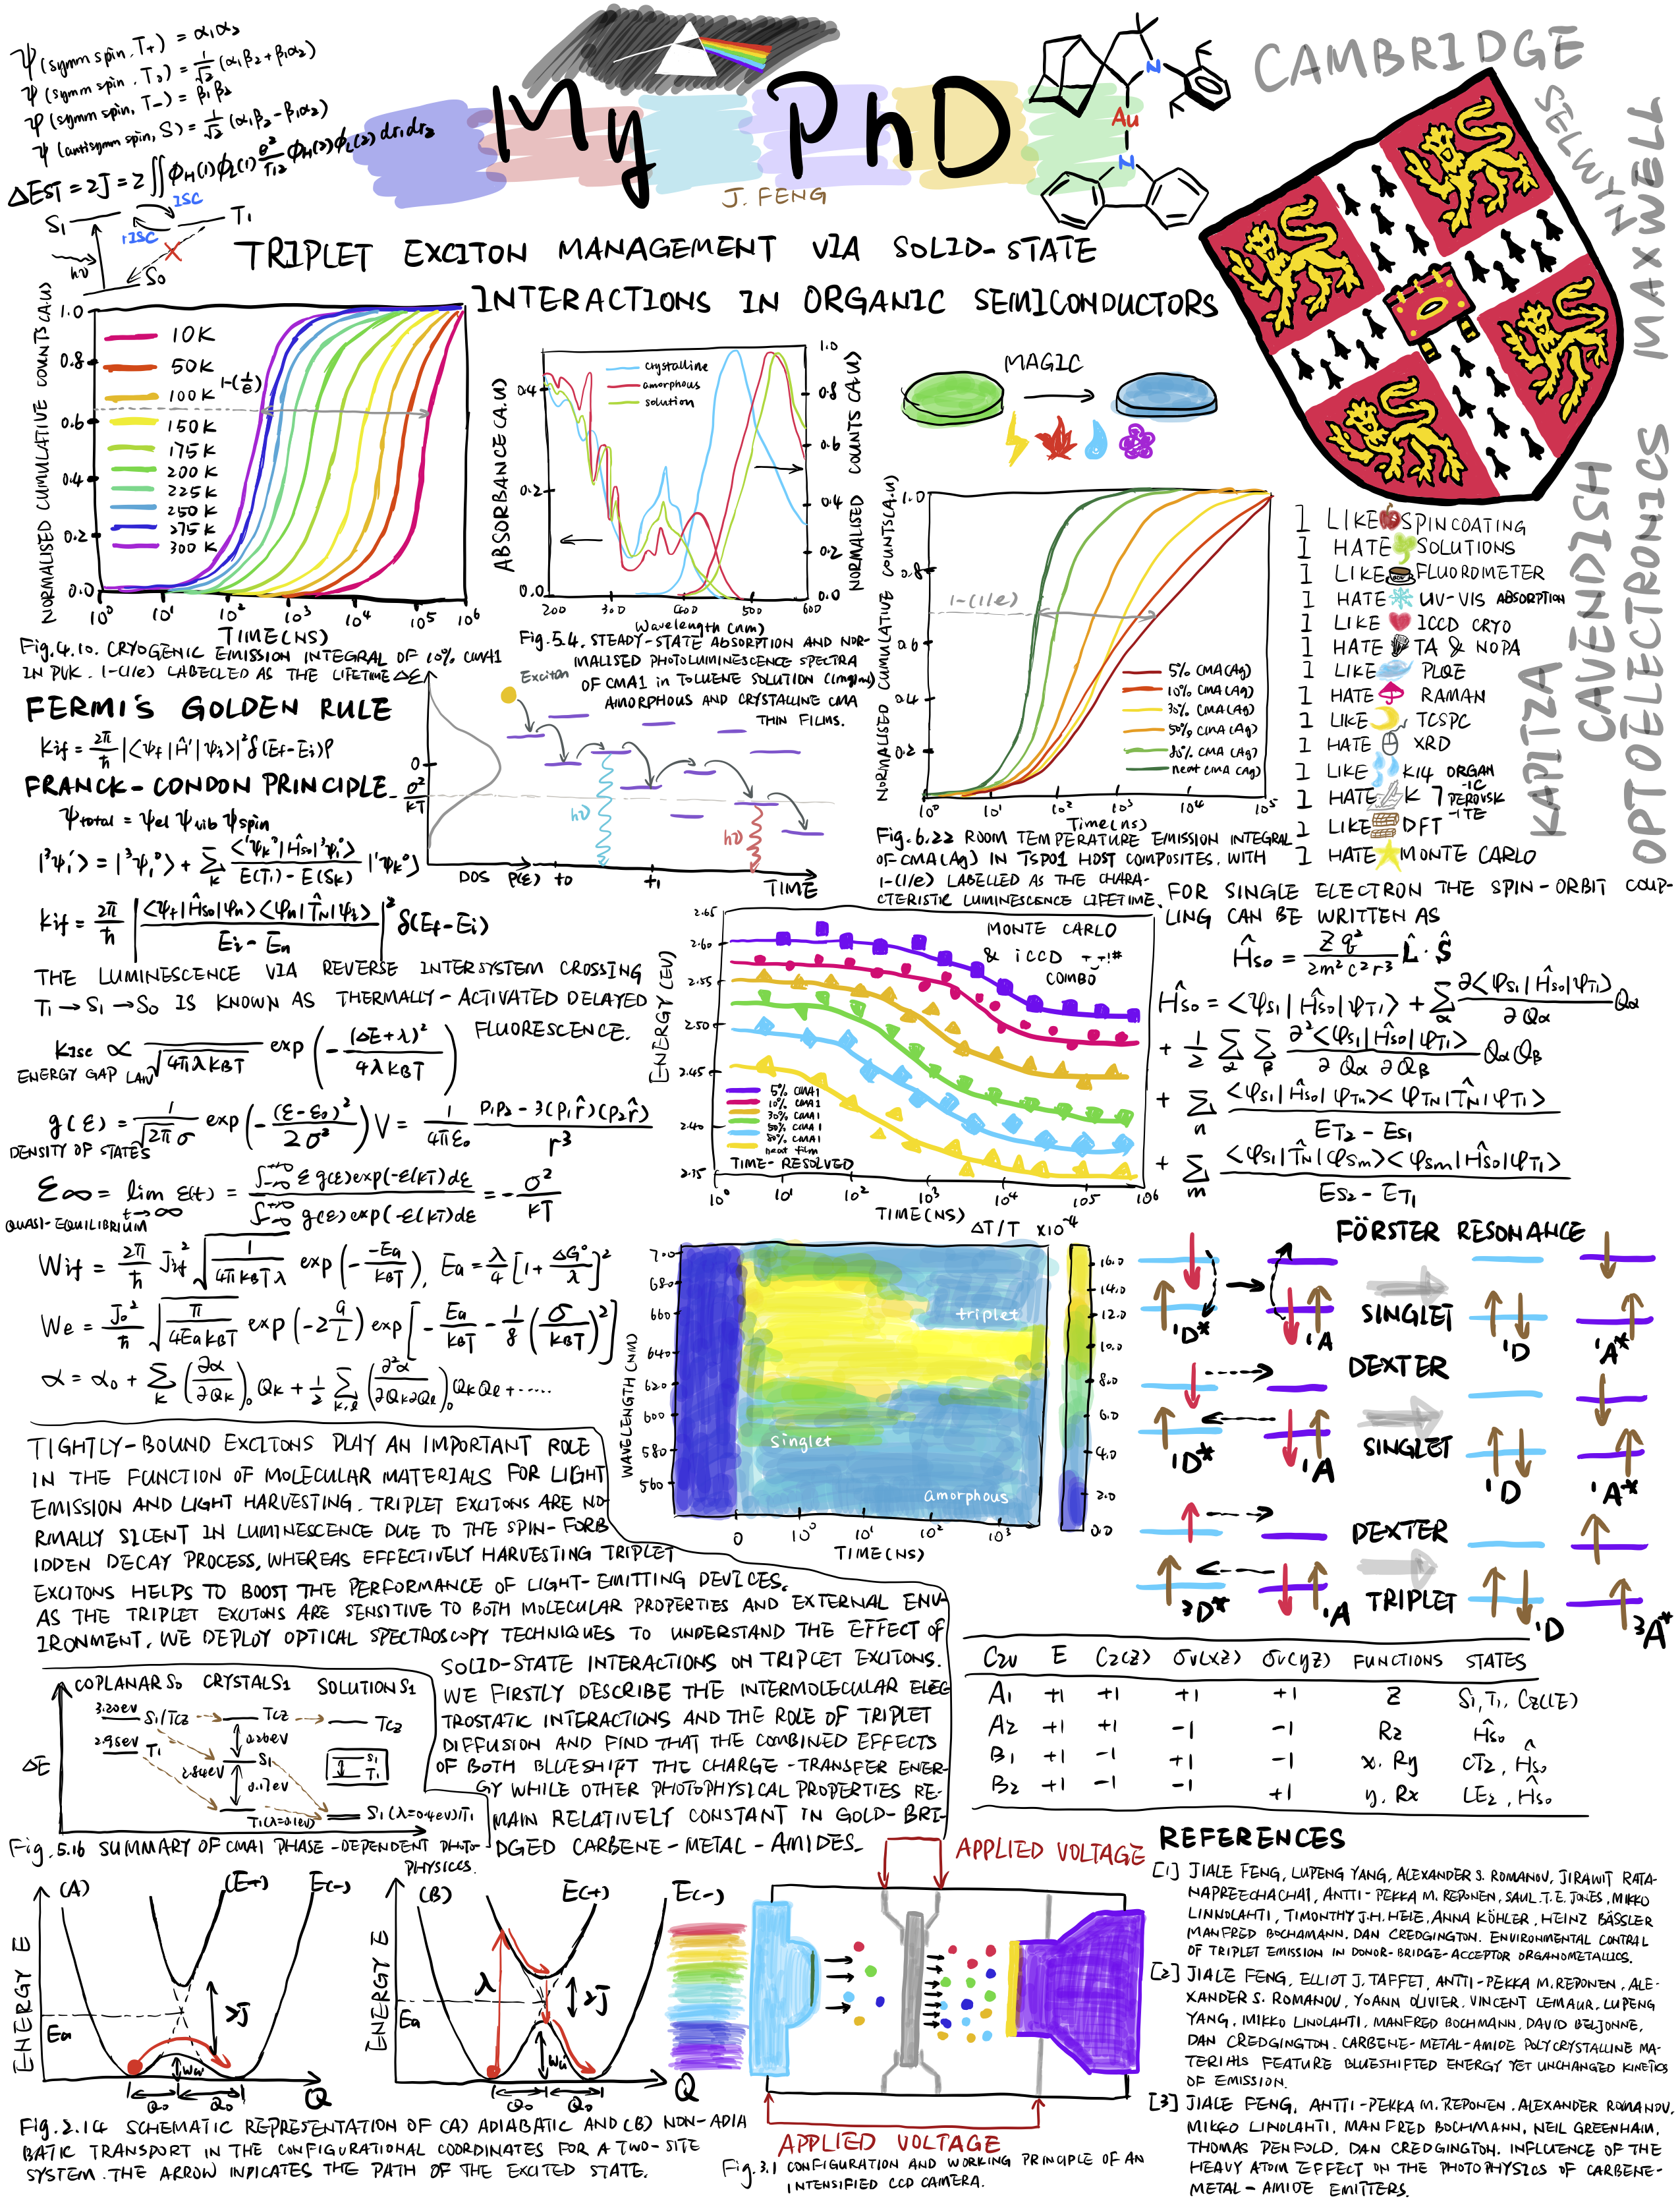 ψ(symm spin, T+) = α1α2
ψ(symm spin, T0) = 1/√2 (α1β2+β1α2)
ψ(symm spin, T-) = β1β2
ψ(antisymm spin, S) = 1/√2 (α1β2-β1α2)
ΔEST = 2J = 2∬ΦH(1)ΦL(1) e²/r12 ΦH(2)ΦL(2)dr1dr2
My PhD
J. FENG
Au
N
N
CAMBRIDGE
SELWYN
MAXWELL
CAVENDISH
KAPITZA
OPTOELECTRONICS
S1
ISC
rISC
T1
hν
S0
TRIPLET EXCITON MANAGEMENT VIA SOLID-STATE
INTERACTIONS IN ORGANIC SEMICONDUCTORS
NORMALISED CUMULATIVE COUNTS (A.U)
1.0
0.8
0.6
0.4
0.2
0.0
10K
50K
100K
150K
175K
200K
225K
250K
275K
300K
1-(1/e)
10⁰ 10¹ 10² 10³ 10⁴ 10⁵ 10⁶
TIME (NS)
Fig.4.10. CRYOGENIC EMISSION INTEGRAL OF 10% CMA1
IN PVK. 1-(1/e) LABELLED AS THE LIFETIME
ABSORBANCE (A.U)
0.4
0.2
0.0
crystalline
amorphous
solution
1.0
0.8
0.6
0.4
0.2
0.0
NORMALISED COUNTS (A.U)
200 300 400 500 600
Wavelength (nm)
Fig.5.4. STEADY-STATE ABSORPTION AND NOR-
MALISED PHOTOLUMINESCENCE SPECTRA
OF CMA1 IN TOLUENE SOLUTION (1mg/ml)
AMORPHOUS AND CRYSTALLINE CMA
THIN FILMS.
MAGIC
NORMALISED CUMULATIVE COUNTS (A.U)
1.0
0.8
0.6
0.4
0.2
1-(1/e)
5% CMA(Ag)
10% CMA(Ag)
30% CMA(Ag)
50% CMA(Ag)
80% CMA(Ag)
neat CMA(Ag)
10⁰ 10¹ 10² 10³ 10⁴ 10⁵
Time (ns)
Fig.6.22 ROOM TEMPERATURE EMISSION INTEGRAL
OF CMA(Ag) IN TSPO1 HOST COMPOSITES, WITH
1-(1/e) LABELLED AS THE CHARA-
CTERISTIC LUMINESCENCE LIFETIME.
I LIKE SPINCOATING
I HATE SOLUTIONS
I LIKE FLUOROMETER
I HATE UV-VIS ABSORPTION
I LIKE ICCD CRYO
I HATE TA & NOPA
I LIKE PLQE
I HATE RAMAN
I LIKE TCSPC
I HATE XRD
I LIKE K14 ORGAN-IC
I HATE K7 PEROVSK-ITE
I LIKE DFT
I HATE MONTE CARLO
FERMI'S GOLDEN RULE
Kif = 2π/ħ |<ψf|Ĥ'|ψi>|² δ(Ef-Ei)ρ
FRANCK-CONDON PRINCIPLE
ψtotal = ψel ψvib ψspin
|³ψ1'> = |³ψ1⁰> + Σk <¹ψk⁰|Ĥso|³ψ1⁰> / E(T1)-E(Sk) |¹ψk⁰>
Kif = 2π/ħ |<ψf|Ĥso|ψn><ψn|T̂N|ψi> / Ei-En|² δ(Ef-Ei)
ΔE
Exciton
0
-σ²/kT
hν
hν
DOS P(ε) t0 t1 TIME
THE LUMINESCENCE VIA REVERSE INTERSYSTEM CROSSING
T1→S1→S0 IS KNOWN AS THERMALLY-ACTIVATED DELAYED
FLUORESCENCE.
KISC ∝ 1/√4πλKBT exp(-(ΔE+λ)²/4λKBT)
ENERGY GAP LAW
g(ε) = 1/√2πσ exp(-(ε-ε0)²/2σ²) V = 1/4πε0 p1p2-3(p1r̂)(p2r̂)/r³
DENSITY OF STATES
ε∞ = lim t→∞ ε(t) = ∫-∞+∞ ε g(ε)exp(-ε/kT)dε / ∫-∞+∞ g(ε)exp(-ε/kT)dε = -σ²/kT
QUASI-EQUILIBRIUM
Wif = 2π/ħ Jif² √1/4πKBTλ exp(-Ea/KBT), Ea = λ/4 [1+ΔG°/λ]²
We = J0²/ħ √π/4EaKBT exp(-2a/L) exp[-Ea/KBT - 1/8(σ/KBT)²]
α = α0 + Σk (∂α/∂Qk)0 Qk + 1/2 Σk,l (∂²α/∂Qk∂Ql)0 QkQl + .....
[ENERGY (EV)
2.65
2.60
2.55
2.50
2.45
2.40
2.35
MONTE CARLO
& iCCD
COMBO
5% CMA1
10% CMA1
30% CMA1
50% CMA1
80% CMA1
neat film
TIME-RESOLVED
10⁰ 10¹ 10² 10³ 10⁴ 10⁵ 10⁶
TIME (NS)
FOR SINGLE ELECTRON THE SPIN-ORBIT COUP-
LING CAN BE WRITTEN AS
Ĥso = Zq²/2m²c²r³ L̂·Ŝ
Ĥso = <ψS1|Ĥso|ψT1> + Σα ∂<ψS1|Ĥso|ψT1>/∂Qα Qα
+ 1/2 Σα Σβ ∂²<ψS1|Ĥso|ψT1>/∂Qα∂Qβ QαQβ
+ Σn <ψS1|Ĥso|ψTn><ψTN|T̂N|ψT1> / ET2-ES1
+ Σm <ψS1|T̂N|ψSm><ψSm|Ĥso|ψT1> / ES2-ET1
ΔT/T ×10⁻⁴
WAVELENGTH (NM)
700
680
660
640
620
600
580
560
triplet
singlet
amorphous
16.0
14.0
12.0
10.0
8.0
6.0
4.0
2.0
0.0
0 10⁰ 10¹ 10² 10³
TIME (NS)
FÖRSTER RESONANCE
SINGLET
¹D* ¹A ¹D ¹A*
DEXTER
SINGLET
¹D* ¹A ¹D ¹A*
DEXTER
TRIPLET
³D* ¹A ¹D ³A*
TIGHTLY-BOUND EXCITONS PLAY AN IMPORTANT ROLE
IN THE FUNCTION OF MOLECULAR MATERIALS FOR LIGHT
EMISSION AND LIGHT HARVESTING. TRIPLET EXCITONS ARE NO-
RMALLY SILENT IN LUMINESCENCE DUE TO THE SPIN-FORB
IDDEN DECAY PROCESS, WHEREAS EFFECTIVELY HARVESTING TRIPLET
EXCITONS HELPS TO BOOST THE PERFORMANCE OF LIGHT-EMITTING DEVICES.
AS THE TRIPLET EXCITONS ARE SENSITIVE TO BOTH MOLECULAR PROPERTIES AND EXTERNAL ENV-
IRONMENT, WE DEPLOY OPTICAL SPECTROSCOPY TECHNIQUES TO UNDERSTAND THE EFFECT OF
SOLID-STATE INTERACTIONS ON TRIPLET EXCITONS.
WE FIRSTLY DESCRIBE THE INTERMOLECULAR ELEC
TROSTATIC INTERACTIONS AND THE ROLE OF TRIPLET
DIFFUSION AND FIND THAT THE COMBINED EFFECTS
OF BOTH BLUESHIFT THE CHARGE-TRANSFER ENER-
GY WHILE OTHER PHOTOPHYSICAL PROPERTIES RE-
MAIN RELATIVELY CONSTANT IN GOLD-BRI-
DGED CARBENE-METAL-AMIDES.
COPLANAR S0 CRYSTAL S1 SOLUTION S1
ΔE
3.20eV S1/TCZ TCZ TCZ
2.95eV T1
0.20eV
2.84eV S1
0.17eV
S1
T1
T1(λ=0.1eV)
S1(λ=0.4eV)/T1
Fig.5.16 SUMMARY OF CMA1 PHASE-DEPENDENT PHOTO-
PHYSICS.
C2v E C2(Z) σv(XZ) σv(YZ) FUNCTIONS STATES
A1 +1 +1 +1 +1 Z S1,T1, CZ(LE)
A2 +1 +1 -1 -1 Rz Ĥso
B1 +1 -1 +1 -1 x, Ry CT2, Ĥso
B2 +1 -1 -1 +1 y, Rx LE2, Ĥso
ENERGY E
(A) (E+) E(-)
Ea
2J
Wa
Q0 Q0 Q
ENERGY E
(B) E(+) E(-)
Ea
λ
2J
Wa
Q0 Q0 Q
Fig.2.14 SCHEMATIC REPRESENTATION OF (A) ADIABATIC AND (B) NON-ADIA
BATIC TRANSPORT IN THE CONFIGURATIONAL COORDINATES FOR A TWO-SITE
SYSTEM. THE ARROW INDICATES THE PATH OF THE EXCITED STATE.
APPLIED VOLTAGE
APPLIED VOLTAGE
Fig.3.1 CONFIGURATION AND WORKING PRINCIPLE OF AN
INTENSIFIED CCD CAMERA.
REFERENCES
[1] JIALE FENG, LUPENG YANG, ALEXANDER S. ROMANOV, JIRAWIT RATA-
NAPREECHACHAI, ANTTI-PEKKA M. REPONEN, SAUL.T.E. JONES, MIKKO
LINNOLAHTI, TIMONTHY J.H. HELE, ANNA KÖHLER, HEINZ BÄSSLER
MANFRED BOCHAMANN, DAN CREDGINGTON. ENVIRONMENTAL CONTRAL
OF TRIPLET EMISSION IN DONOR-BRIDGE-ACCEPTOR ORGANOMETALLICS.
[2] JIALE FENG, ELLIOT J. TAFFET, ANTTI-PEKKA M. REPONEN, ALE-
XANDER S. ROMANOV, YOANN OLIVIER, VINCENT LEMAUR, LUPENG
YANG, MIKKO LINOLAHTI, MANFRED BOCHMANN, DAVID BELJONNE,
DAN CREDGINGTON. CARBENE-METAL-AMIDE POLYCRYSTALLINE MA-
TERIALS FEATURE BLUESHIFTED ENERGY YET UNCHANGED KINETICS
OF EMISSION.
[3] JIALE FENG, ANTTI-PEKKA M. REPONEN, ALEXANDER ROMANOV,
MIKKO LINOLAHTI, MANFRED BOCHMANN, NEIL GREENHAM,
THOMAS PENFOLD, DAN CREDGINGTON. INFLUENCE OF THE
HEAVY ATOM EFFECT ON THE PHOTOPHYSICS OF CARBENE-
METAL-AMIDE EMITTERS.